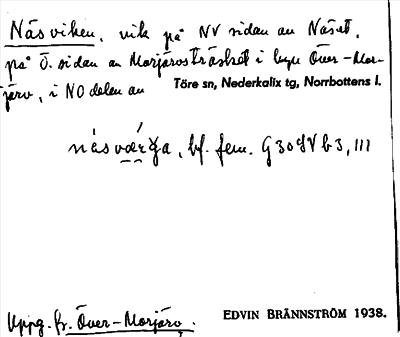 Näsviken, vik på NV sidan av Näset,
på Ö. sidan av Morjärvsträsket i byn Över-Mor-
järv, i NO delen av Töre sn, Nederkalix tg, Norrbottens l.
bf. fem. G 30 g V b 3, 111
Uppg. fr. Över-Morjärv. EDVIN BRÄNNSTRÖM 1938.